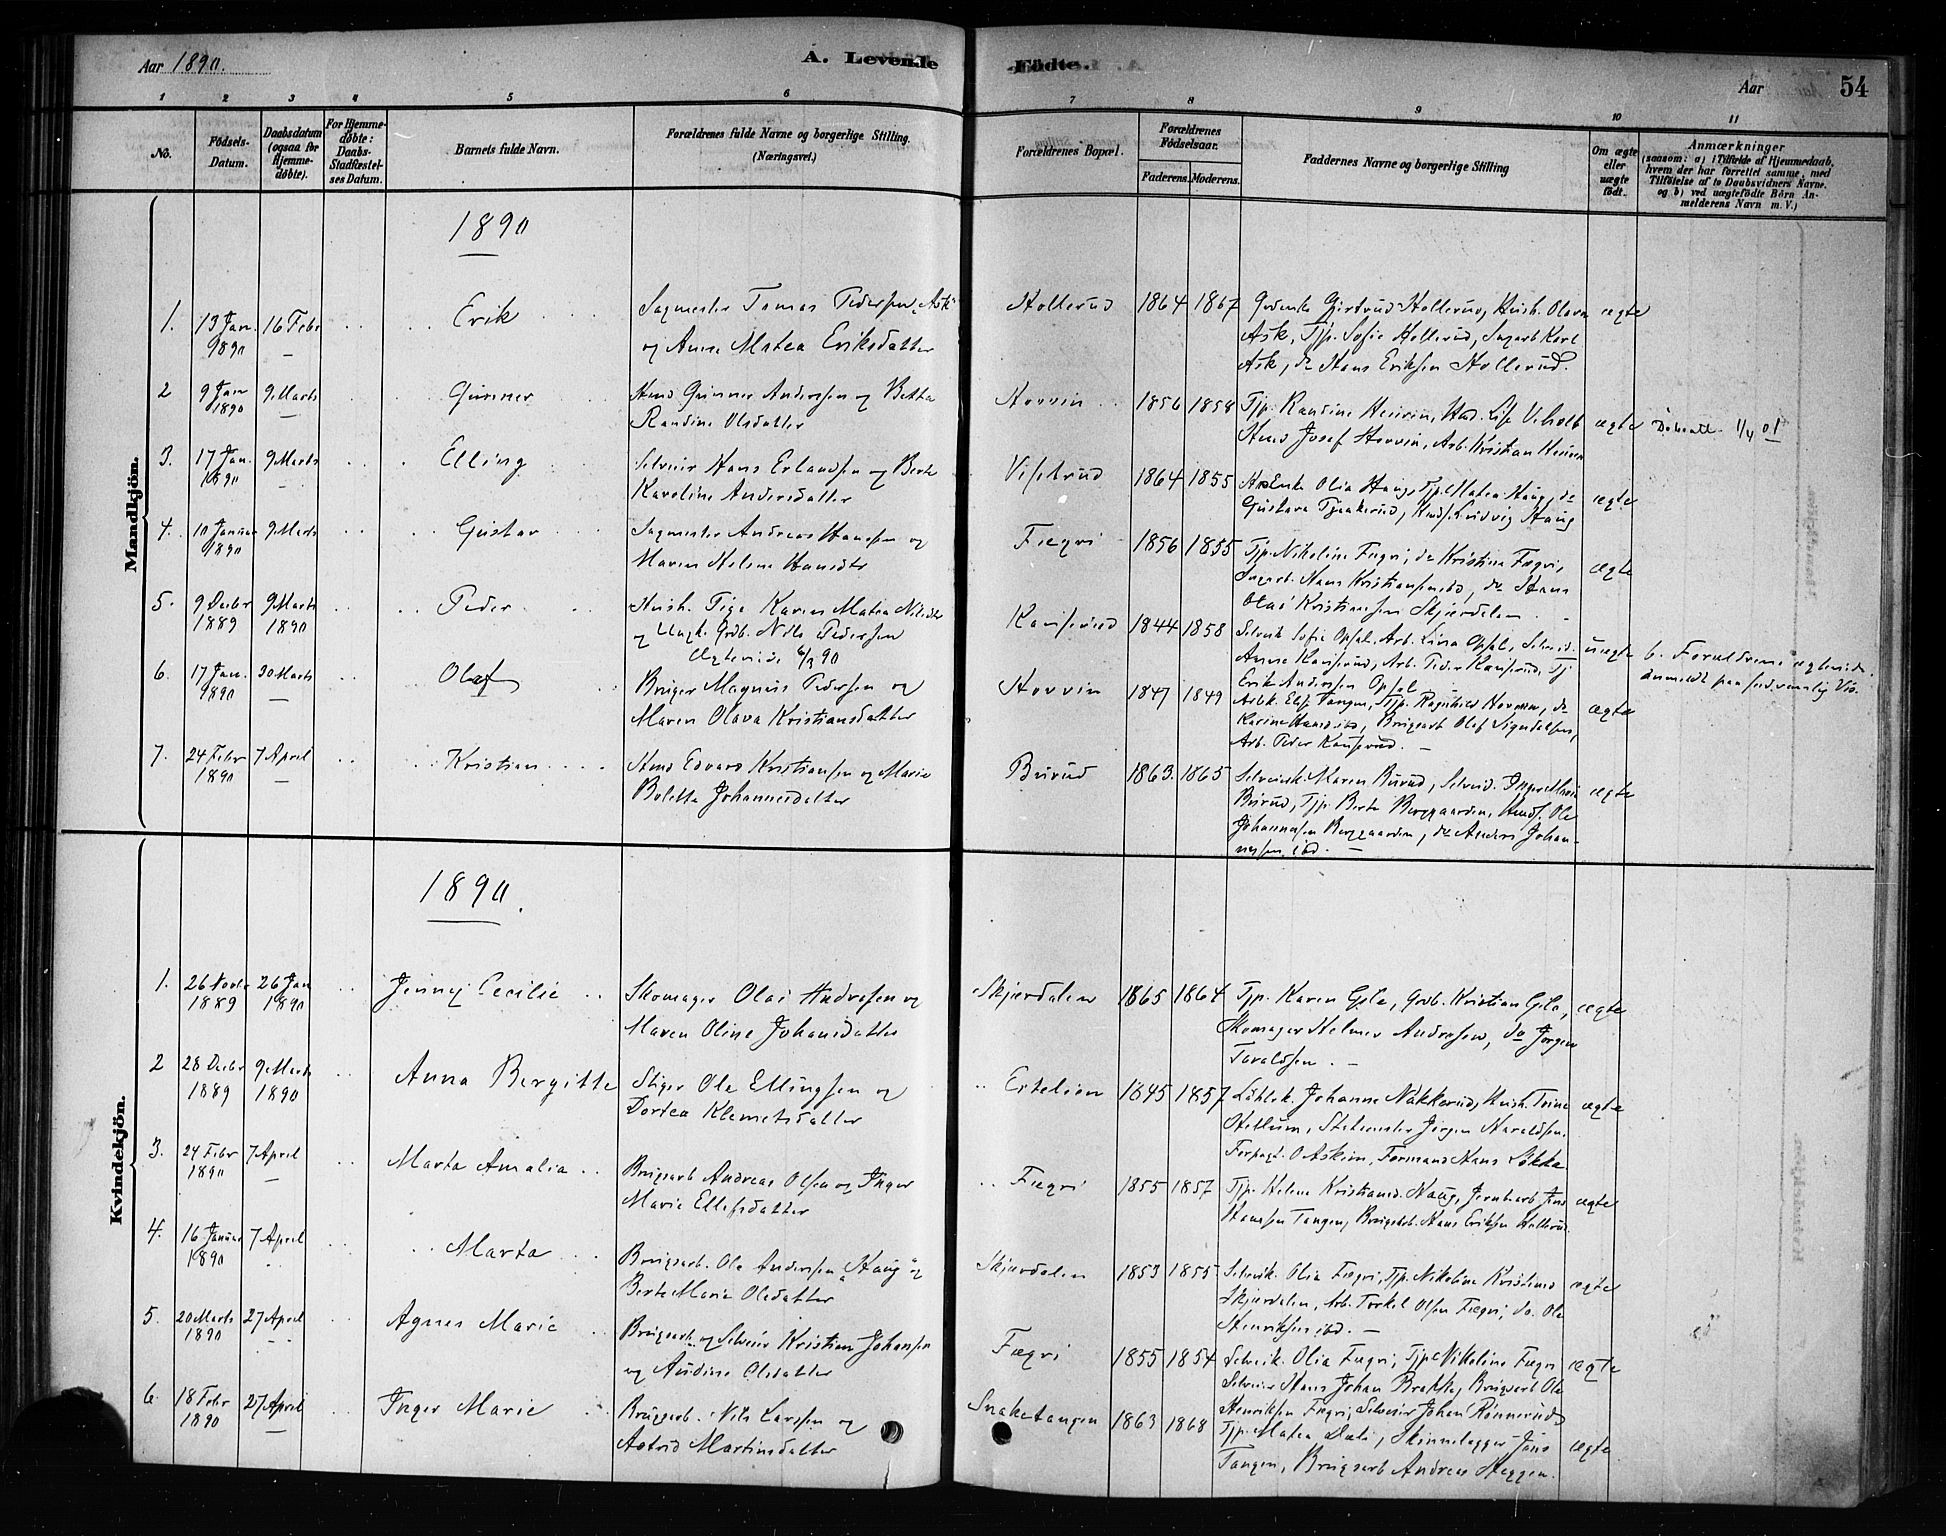 Aar 1890.
A. Levende
Fødte.
Aar
54
1 2 3 4 5 6 7 8 9 10 11
No.
Fødsels-
Datum.
Daabsdatum
(ogsaa for
Hjemme-
døbte).
For Hjemme-
døbte:
Daabs-
Stadfæstel-
ses Datum.
Barnets fulde Navn.
Forældrenes fulde Navne og borgerlige Stilling.
(Næringsvei.)
Forældrenes Bopæl.
Forældrenes
Fødselsaar.
Faderens. Moderens.
Faddernes Navne og borgerlige Stilling
Om ægte
eller
uægte
født.
Anmærkninger
(saasom: a) i Tilfælde af Hjemmedaab,
hvem der har forrettet samme, med
Tilføielse af to Daabsvidners Navne.
og b) ved uægtefødte Børn An-
melderens Navn m. V.)
Mandkjön.
1890
1. 13 Jan. 1890 16 Febr Erik
Sagmester Tomas Pedersen Ask
og Anne Matea Eriksdatter
Hollerud 1864 1867
Gjertrud Hollerud, Hush. Olava
Ask, Tjp. Sofie Hollerud, Sagarb Karl
Ask, do Hans Eriksen Hollerud.
ægte
2 9 Jan 1890 9 Marts Gunner
Hmd Gunner Andersen og Betta
Randine Olsdatter
Hovvin 1856 1858
Tjp. Randine Heieren,
Hmd Josef Hovvin, Arb. Kristian Heieren
ægte
Dobsatt 1/4 01
3. 17 Jan. 1890 9 Marts Elling
Selveier Hans Erlandsen og Berte
Karoline Andersdatter
1864 1855
Olia Haug, Tjp. Matea Haug, do
Gustava Tjaakerud, Ludvig Haug
ægte
4. 10 Januar 1890 9 Marts Gustav
Sagmester Andreas Hansen og
Maren Helene Hansdtr
Fægri 1856 1855
Tjp. Nikoline Fægri, do Kristine Fægri,
Sagarb. Hans Kristiansen ibd, do Hans
Olai Kristiansen Skjærdalen
ægte
5. 9 Decbr 1889 9 Marts 1890 Peder
Hush. Pige Karen Matea Nilsdtr
og Ungk. Grdb. Nils Pedersen
Ægteviede 6/3 90
1844 1858
Selveik Sofie Opsal, Arb. Lina Opsal,
Anne Kanserud, Arb. Peder Kanserud, Tj
Erik Andersen Opsal
uægte
b. Forældrene ægteviede.
anmeldt paa sedvanlig Vis.
6. 17 Jan. 1890 30 Marts Olaf
Bruger Magnus Pedersen og
Maren Olava Kristiansdatter
Hovvin 1847 1849
Arbk. Else Tangen, Tjp. Ragnhild Hovvin, do
Karine Hansd ibd, Brugsarb Olaf Sigurdsen,
Arb. Peder Kanserud.
ægte
7. 24 Febr 1890 7 April Kristian
Hmd Edvard Kristiansen og Marie
Bolette Johannesdatter
Burud 1863. 1865
Selveierk. Maren Burud, Selveid. Inger Marie
Burud, Tjp. Berte Berggaarden, Ole
Johannesen Berggaarden, do Anders Johan-
nesen ibd.
ægte
Kvindekjön.
1890.
1. 26 Novbr 1889 26 Jan 1890 Jenny Cecilie
Skomager Olai Andresen og
Maren Oline Johansdatter
Skjærdalen 1865 1864
Tjp. Karen Gile, Grdb. Kristian Gile,
Skomager Helmer Andresen, do Jørgen
Taraldsen.
ægte
2 28 Decbr 1889 9 Marts 1890 Anna Bergitte
Stiger Ole Ellingsen og
Dortea Klemetsdatter
1845 1857
Johanne Nakkerud, Hush. Trine
Jørgen Haraldsen.
Forpagt. O Askim, Formand Hans Løkke
ægte
3. 24 Febr 1890 7 April Marta Amalia
Brugsarb Andreas Olsen og Inger
Marie Ellefsdatter
Fægri 1855 1857
Tjp. Helene Kristiansd. Haug, Jernbarb. Jens
Hansen Tangen, Brugsarb. Hans Eriksen Hollerud
ægte
4. 16 Januar 1890 7 April Marta
Brugsarb. Ole Andersen "Haug" og
Berte Marie Olsdatter
Skjærdalen 1853 1855
Selveik. Olia Fægri, Tjp. Nikoline Kristiansd
Skjærdalen, Arb. Torkel Olsen Fægri, do. Ole
Henriksen ibd.
ægte
5. 20 Marts 1890 27 April Agnes Marie
Brugsarb og Selveier Kristian Johansen
og Andine Olsdatter
Fægri 1855 1854
Selveik. Olia Fægri, Tjp. Nikoline Fægri
Selveier Hans Johan Brakke, Brugsarb Ole
Henriksen Fægri, Selveier Johan Rønnerud
ægte
6. 18 Febr 1890 27 April Inger Marie
Brugsarb. Nils Larsen og
Astrid Martinsdatter
Snaketangen 1863 1868
Tjp. Matea Dæli, Skinnelægger Jens
Tangen, Brugsarb Andreas Heggen.
ægte